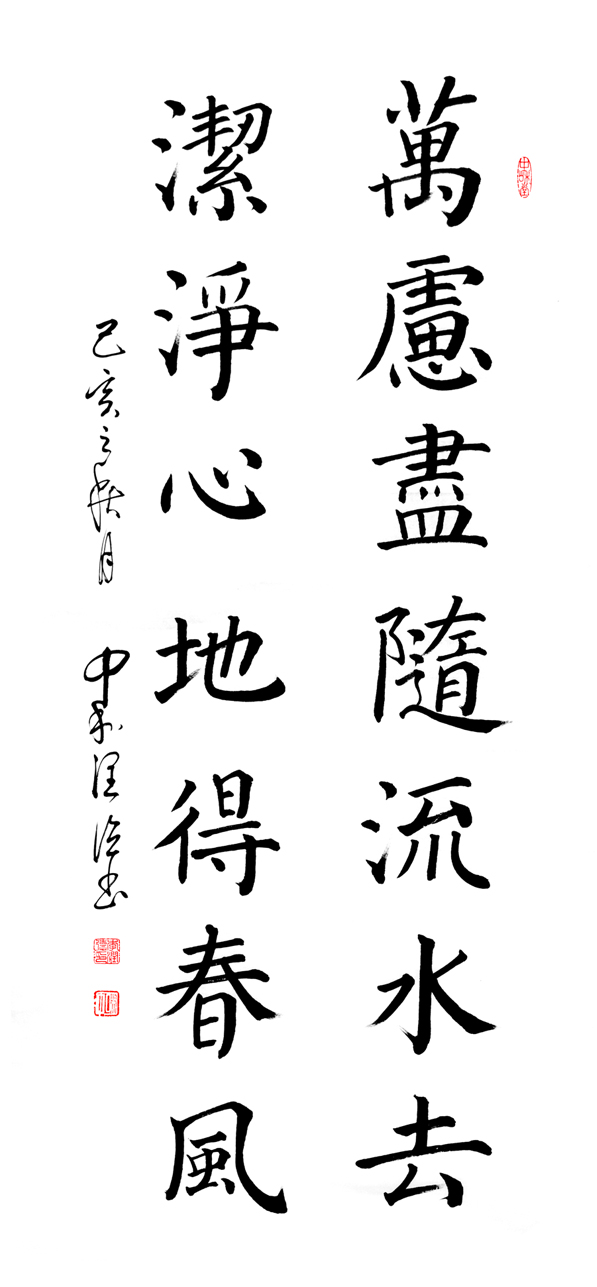 萬慮盡隨流水去
潔淨心地得春風
己亥之秋月